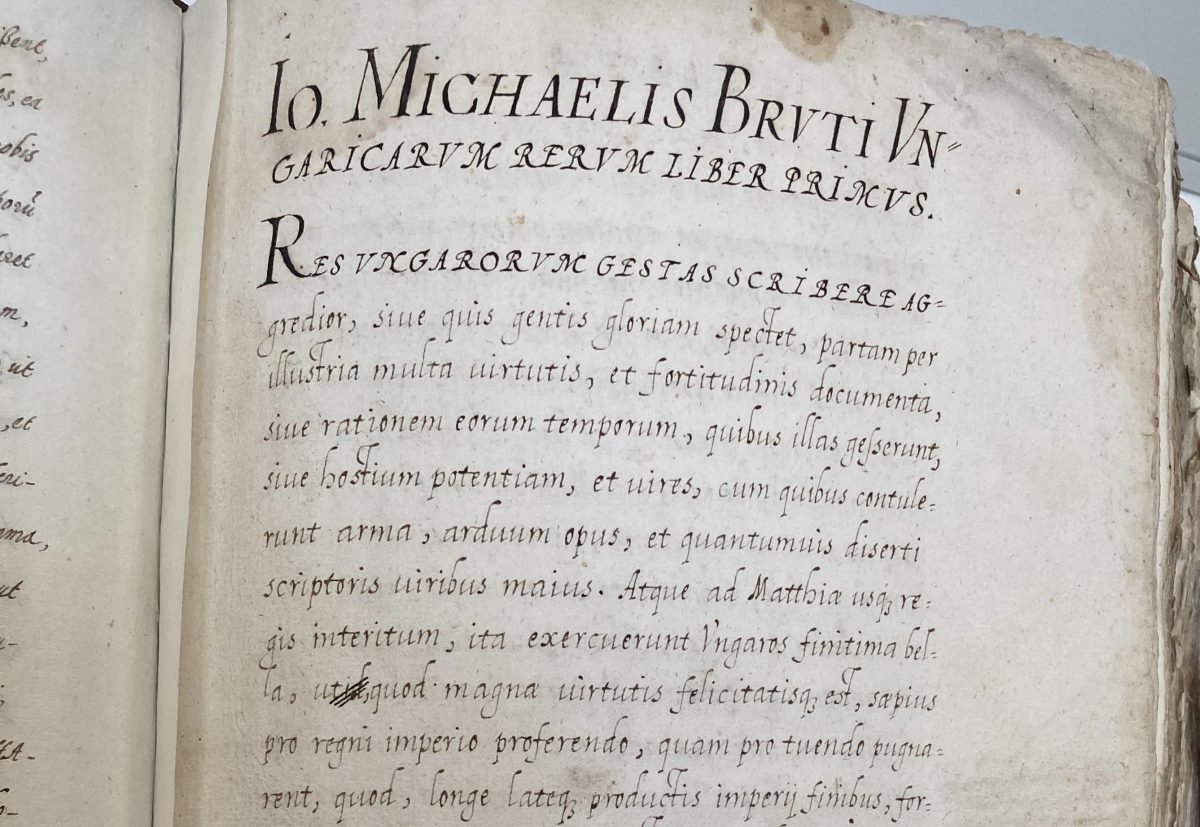 ßent,
os, ea
obis
torũ
eet
m,
ut
, et
eri-
ama,
ut
IO. MICHAELIS BRVTI VN=
GARICARVM RERVM LIBER PRIMVS.
RES VNGARORVM GESTAS SCRIBERE AG=
gredior, siue quis gentis gloriam spectet, partam per
illustria multa uirtutis, et fortitudinis documenta,
siue rationem eorum temporum, quibus illas geſserunt,
siue hostium potentiam, et uires, cum quibus contule=
runt arma, arduum opus, et quantumuis diserti
scriptoris uiribus maius. Atque ad Matthiæ usqꝫ re=
gis interitum, ita exercuerunt Vngaros finitima bel=
la, ut quod magnæ uirtutis felicitatisqꝫ est, sæpius
pro regni imperio proferendo, quam pro tuendo pugna=
rent, quod, longe lateqꝫ productis imperij finibus, for=